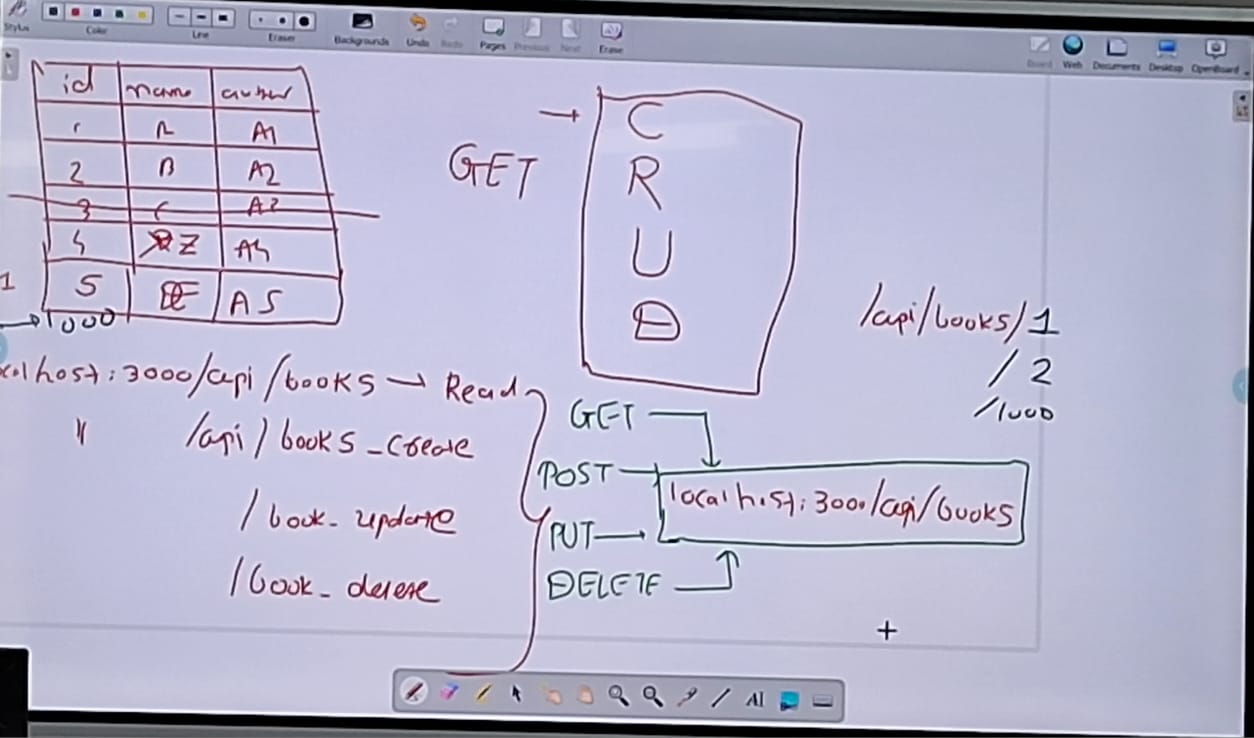 Stylus Color Line Eraser Backgrounds Undo Redo Pages Previous Next Erase Board Web Documents Desktop OpenBoard
id name author
1 A A1
2 B A2
3 C A3
4 Z A4
1 5 E A5
1000
→ C
GET R
U
D
/api/books/1
/2
/1000
calhost:3000/api/books → Read
" /api/books_create
/book_update
/book_delete
GET
POST
PUT
DELETE
localhost:3000/api/books
AI